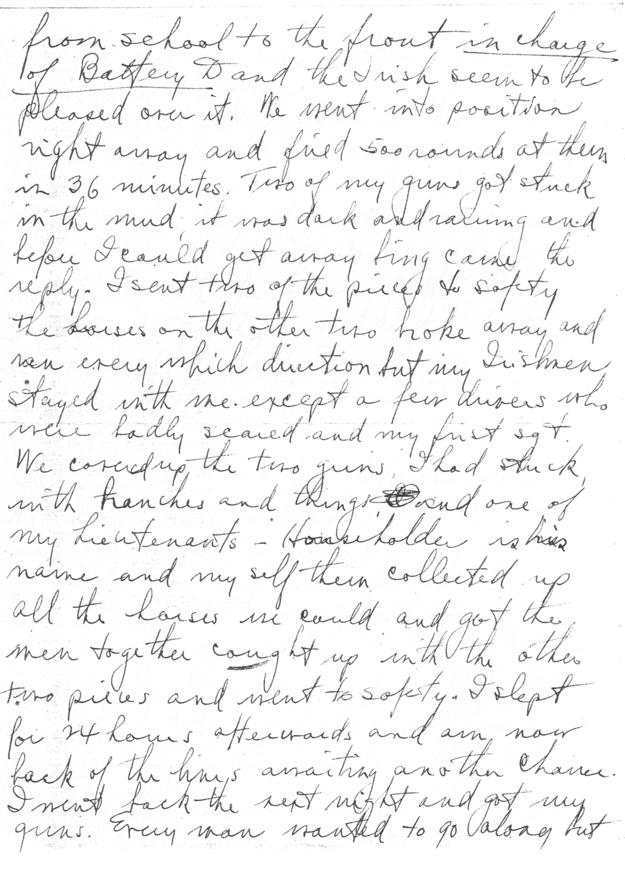 from school to the front in charge
of Battery D and the Irish seem to be
pleased over it. We went into position
right away and fired 500 rounds at them
in 36 minutes. Two of my guns got stuck
in the mud, it was dark and raining and
before I could get away bing came the
reply. I sent two of the pieces to safety
the horses on the other two broke away and
ran every which direction but my Irishmen
stayed with me except a few drivers who
were badly scared and my first sgt.
We covered up the two guns, I had stuck,
with branches and things and one of
my Lieutenants - Housholder is his
name and my self then collected up
all the horses we could and got the
men together caught up with the other
two pieces and went to safety. I slept
for 24 hours afterwards and am now
back of the lines awaiting another chance.
I went back the next night and got my
guns. Every man wanted to go along but